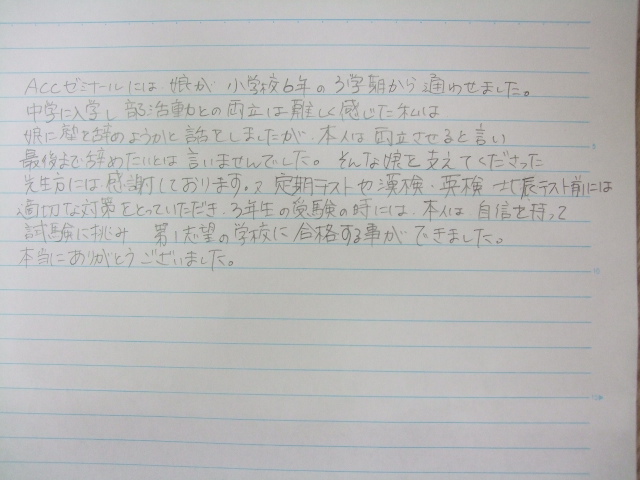 Accゼミナールには 娘が 小学校6年の3学期から通わせました。
中学に入学し 部活動との両立は難しく感じた私は
娘に塾を辞めようかと話をしましたが、本人は両立させると言い
最後まで辞めたいとは言いませんでした。そんな娘を支えてくださった
先生方には感謝しております。又 定期テストや漢検・英検 テスト前には
適切な対策をとっていただき、3年生の受験の時には、本人は自信を持って
試験に挑み 第1志望の学校に合格する事ができました。
本当にありがとうございました。